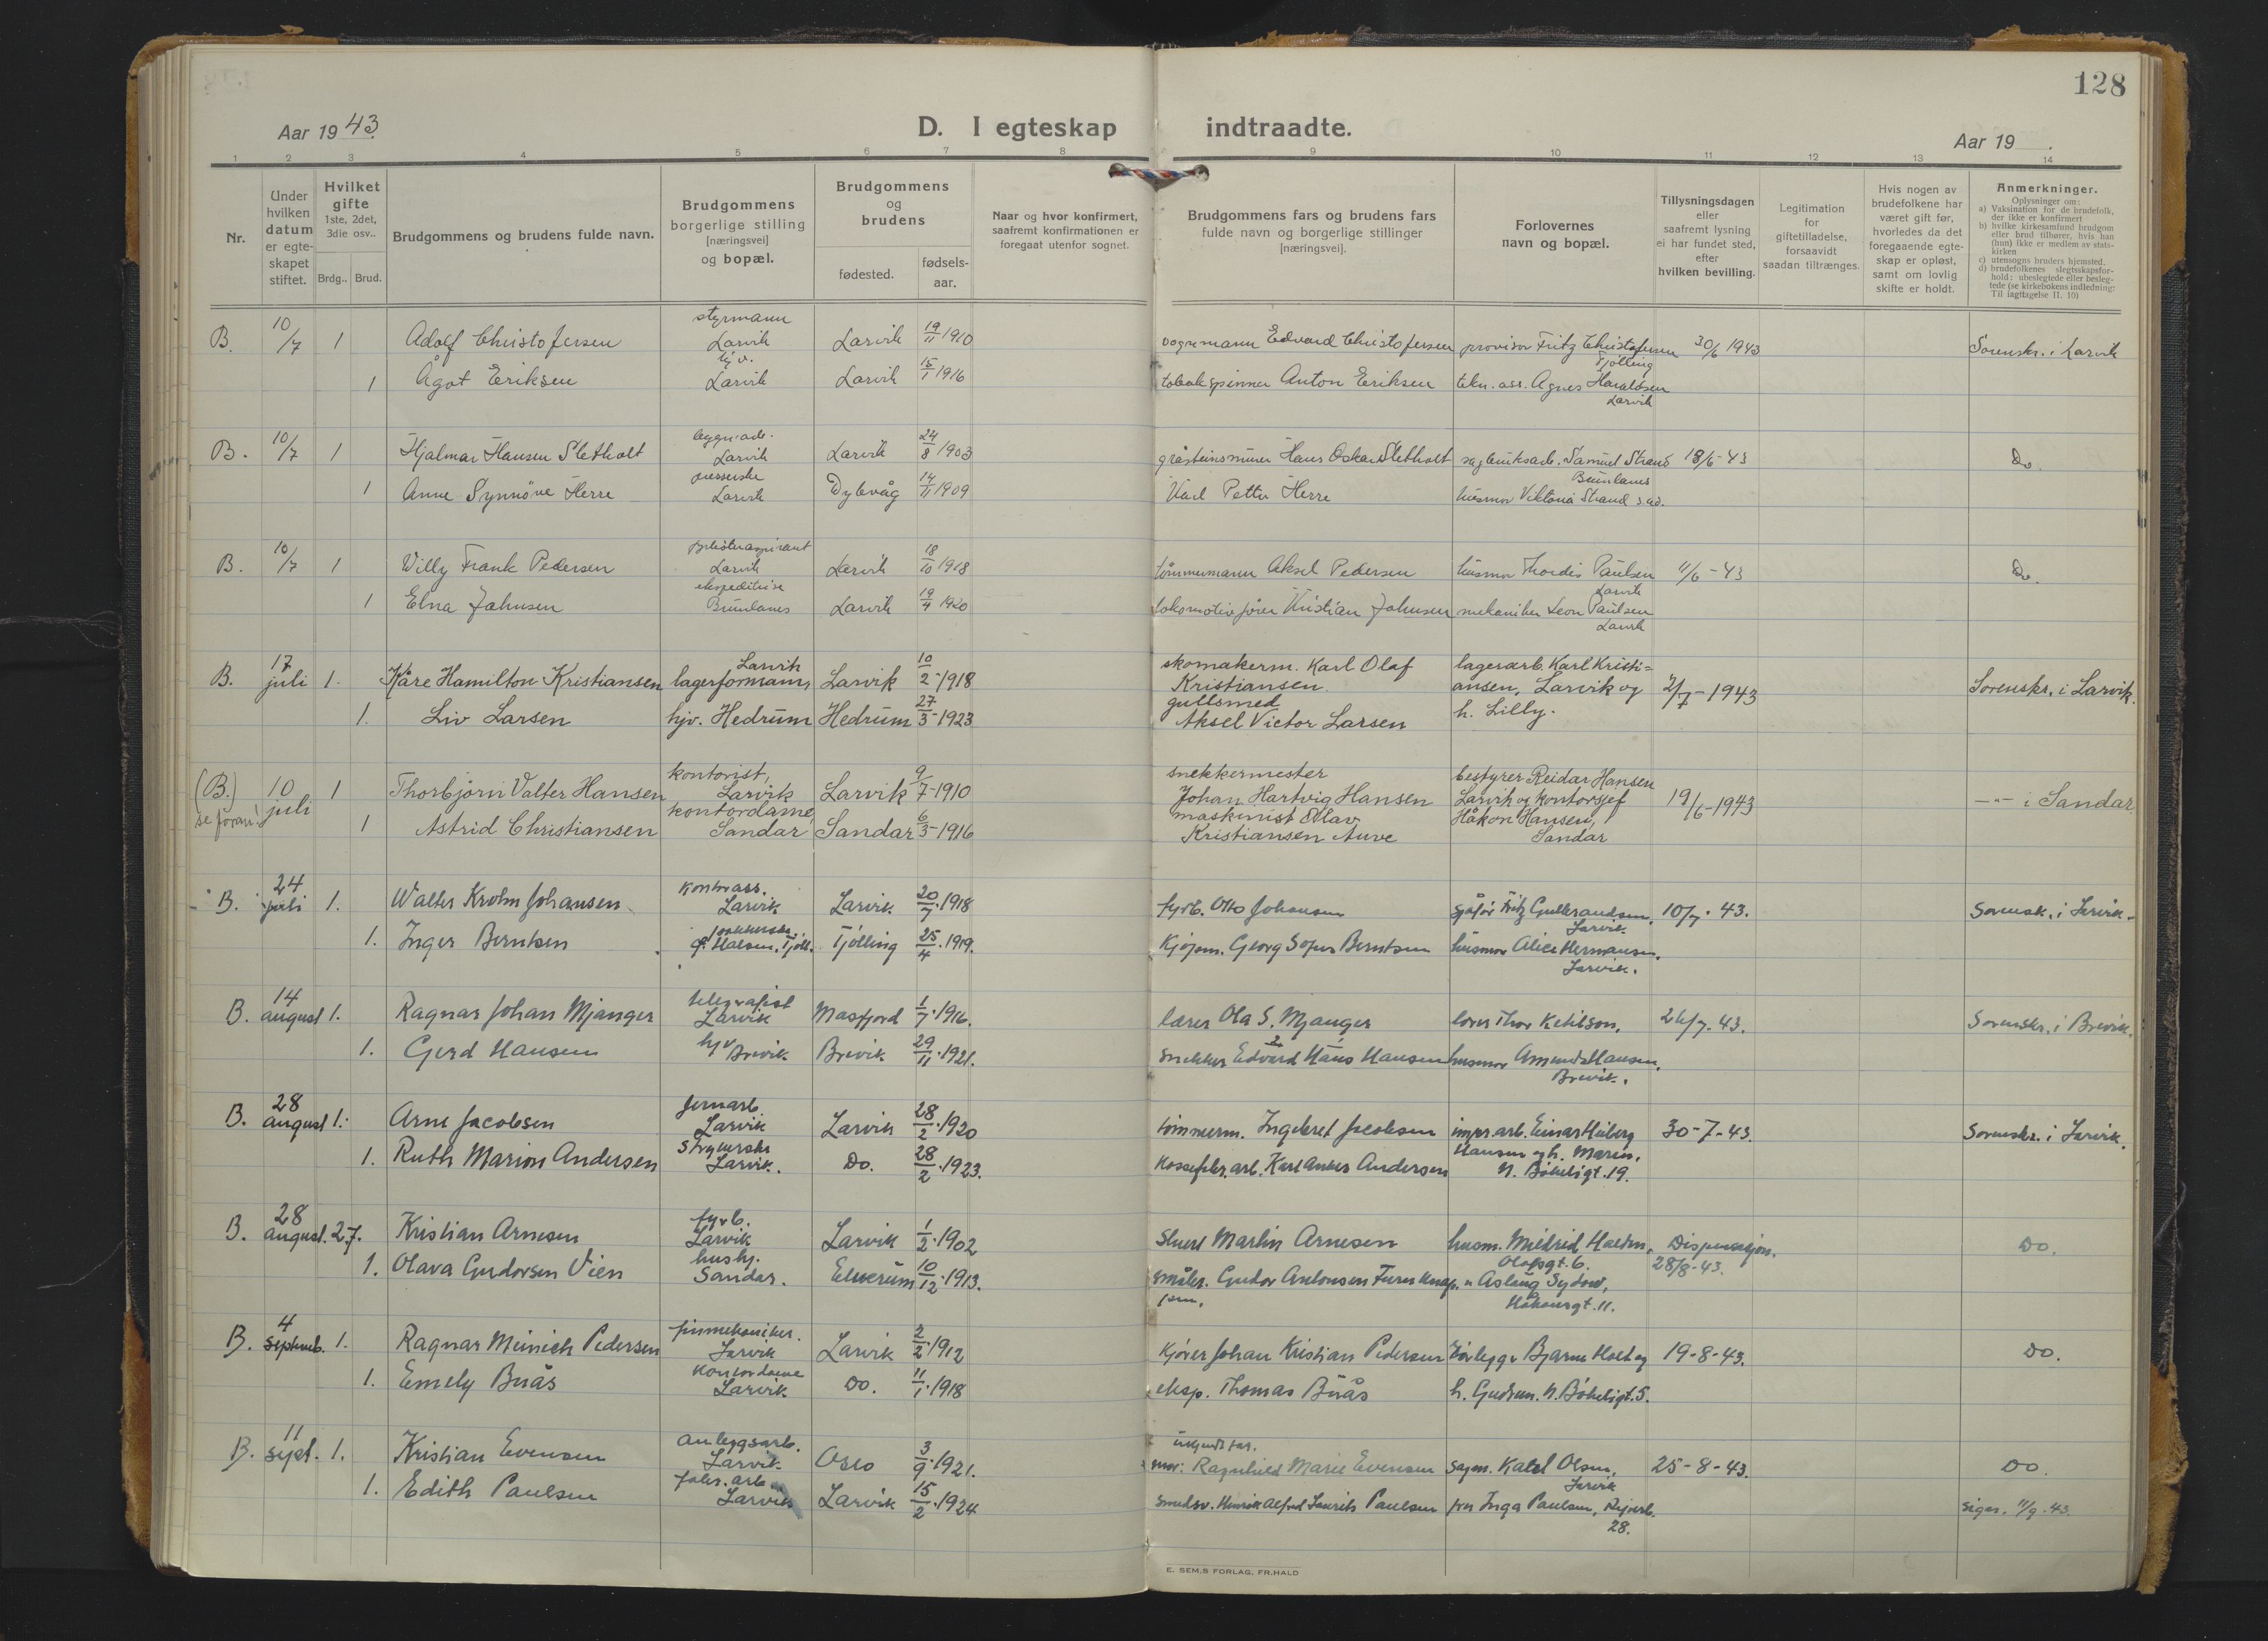 128
Aar 1943.
D. I egteskap indtraadte.
Aar 19 .
1 2 3 4 5 6 7 8 9 10 11 12 13 14
Nr.
Under hvilken datum er egte-skapet stiftet.
Hvilket gifte 1ste, 2det, 3die osv..
Brdg.. Brud.
Brudgommens og brudens fulde navn.
Brudgommens borgerlige stilling [næringsvei] og bopæl.
Brudgommens og brudens
fødested.
fødsels-aar.
Naar og hvor konfirmert, saafremt konfirmationen er foregaat utenfor sognet.
Brudgommens fars og brudens fars fulde navn og borgerlige stillinger [næringsvei].
Forlovernes navn og bopæl.
Tillysningsdagen eller saafremt lysning ei har fundet sted, efter hvilken bevilling.
Legitimation for giftetilladelse, forsaavidt saadan tiltrænges.
Hvis nogen av brudefolkene har været gift før, hvorledes da det foregaaende egte-skap er opløst, samt om lovlig skifte er holdt.
Anmerkninger.
Oplysninger om:
a) Vaksination for de brudefolk, der ikke er konfirmert
b) hvilke kirkesamfund brudgom eller brud tilhører, hvis han (hun) ikke er medlem av stats-kirken
c) utensogns bruders hjemsted.
d) brudefolkenes slegtsskapsfor-hold: ubeslegtede eller besleg-tede (se kirkebokens indledning: Til iagttagelse II. 10)
B. 10/7 1 Adolf Christofersen styrmann Larvik Larvik 19/11 1910 vognmann Edvard Christofersen provisor Fritz Christofersen Tjølling 30/6 1943 Sorenskr. i Larvik
1 Ågot Eriksen hjv. Larvik Larvik 15/1 1916 tobakspinner Anton Eriksen tekn. ass. Agnes Haraldsen Larvik
B. 10/7 1 Hjalmar Hansen Sletholt Larvik Larvik 24/8 1903 gråsteinsminer Hans Oskar Sletholt sagbruksarb. Samuel Strand Brunlanes 18/6-43 Do
1 Anne Synnöve Herre Larvik Dybvåg 14/11 1909 Karl Petter Herre husmor Viktoria Strand s.ad.
B. 10/7 1 Willy Frank Pedersen Larvik Larvik 18/10 1918 tømmermann Aksel Pedersen husmor Thordis Paulsen Larvik 11/6-43 Do.
1 Elna Jahnsen ekspeditrise Brunlanes Larvik 19/4 1920 lokomotivfører Kristian Jahnsen mekaniker Leon Paulsen Larvik
B. 17 juli 1. Kåre Hamilton Kristiansen lagerformann, Larvik Larvik 10/2-1918 skomakerm. Karl Olaf Kristiansen lagerarb. Karl Kristi=ansen, Larvik og h. Lilly. 2/7-1943 Sorenskr. i Larvik.
1. Liv Larsen hjv. Hedrum Hedrum 27/3-1923 gullsmed Aksel Victor Larsen
(B.) se foran! 10 juli 1 Thorbjørn Valter Hansen kontorist, Larvik Larvik 9/7-1910 snekkermester Johan Hartvig Hansen bestyrer Reidar Hansen Larvik og kontorsjef Håkon Hansen, Sandar 19/6-1943 -"- i Sandar.
1 Astrid Christiansen kontordame, Sandar Sandar 6/3-1916 maskinist Olav Kristiansen Auve
B. 24 juli 1. Walter Krohn Johansen kontorass. Larvik Larvik 20/7.1918 fyrb. Otto Johansen sjåfør Fritz Gulbrandsen, Larvik 10/7.43. Sorensk. i Larvik.
1. Inger Berntsen Halsen, Tjøll. Tjølling 25/4.1919. Kjøpm. Georg Sofus Berntsen husmor Alice Hermansen, Larvik.
B. 14 august 1. Ragnar Johan Mjanger telegrafist Larvik Masfjord 1/7.1916. lærer Ola S. Mjanger Thor Ketilson, 26/7.43. Sorenskr. i Brevik.
1. Gerd Hansen hjv Brevik Brevik 29/11.1921. snekker Edvard Hans Hansen husmor Amunda Hansen, Brevik.
B. 28 august 1. Arne Jacobsen jernarb. Larvik Larvik 28/2.1920 tømmerm. Ingebret Jacobsen impr.arb. Einar Heiberg Hansen og h. Marin, N. Bøkeligt. 19. 30-7-43. Sorenskr. i Larvik.
1. Ruth Marion Andersen strykerske Larvik. Do. 28/2.1923. Kassefabr.arb. Karl Anker Andersen
B. 28 august. 2.f. Kristian Arnesen fyrb. Larvik Larvik 1/2.1902 Martin Arnesen husm. Mildrid Halden, Olafsgt. 6. Dispensasjon. 28/8-43. Do.
1. Olava Gudorsen Vien hush. Sandar. Elverum 10/12.1913. småbr. Gudor Antonsen " Aslaug Sydow, Håkonsgt. 11.
B. 4 septemb. 1. Ragnar Meinich Pedersen finmekaniker. Larvik Larvik 2/2.1912 Kjører Johan Kristian Pedersen rørlegger Bjarne Holt og h. Gudrun. N. Bøkeligt. 5. 19-8-43. Do.
1. Emely Buås kontordame Larvik Do. 11/1.1918 eksp. Thomas Buås
B. 11 sept. 1. Kristian Evensen anleggsarb. Larvik Oslo 3/9.1921. ukjendt far. mor: Ragnhild Marie Evensen sagm. Katel Olsen, Larvik 25-8-43. Do.
1. Edith Paulsen fabr.arb Larvik Larvik 15/2.1924 smedsv. Henrik Alfred Laurits Paulsen fru Inga Paulsen, 28. 11/9-43.
E. SEM.S FORLAG, FR.HALD